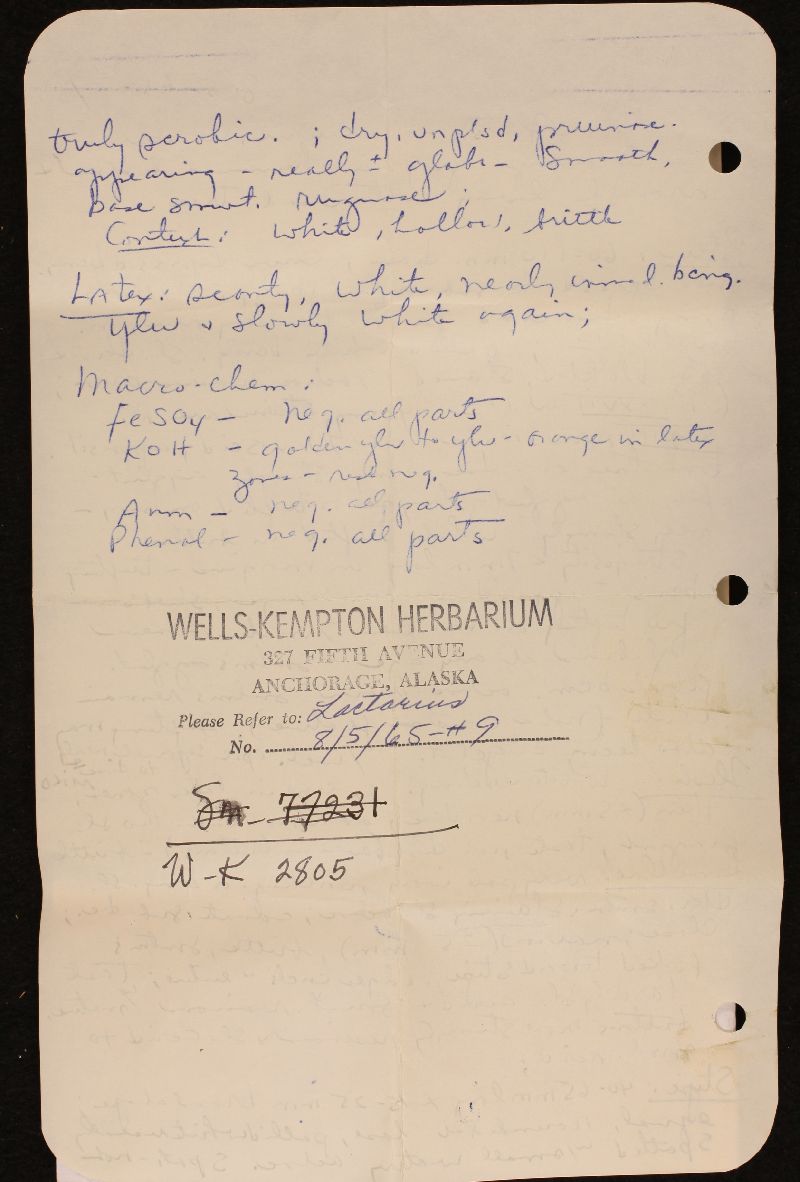 truly scrobic. ; dry, unpl'sd, pruinose
appearing - really ± glabr- Smooth,
base smwt. rugose ;
Context: white, hollow, brittle
Latex: scanty, white, nearly immed. being.
ylw & slowly white again;
Macro-chem:
FeSO4 - neg. all parts
KOH - golden ylw to ylw-orange in latex
zones - rest neg.
Amm - neg. all parts
Phenol - neg. all parts
WELLS-KEMPTON HERBARIUM
327 FIFTH AVENUE
ANCHORAGE, ALASKA
Please Refer to: Lactarius
No. 8/5/65-#9
Sm- 77231
W-K 2805